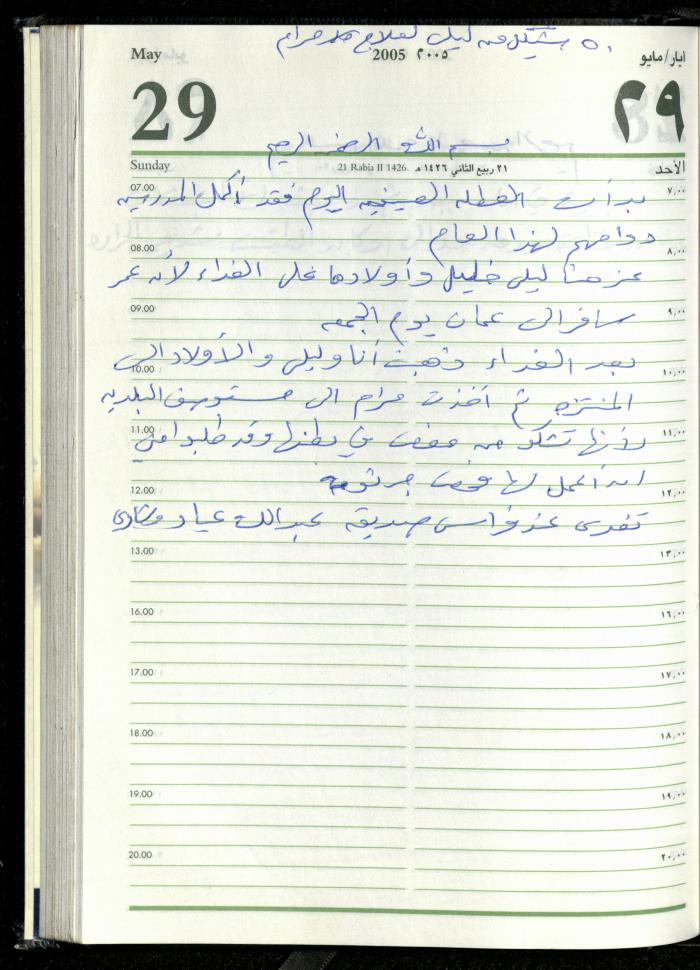 ٥٠ شيكل من ليلى لعلاج مرام
May 2005 ٢٠٠٥ ايار/مايو
29 ٢٩
بسم الله الرحمن الرحيم
Sunday 21 Rabia II 1426 ٢١ ربيع الثاني ١٤٢٦ هـ الأحد
07.00 ٧,٠٠
بدأت العطله الصيفيه اليوم فقد أكمل المدرسين
دوامهم لهذا العام
08.00 ٨,٠٠
عزمنا ليلى خليل وأولادها على الغداء لأن عمر
09.00 ٩,٠٠
سافر الى عمان يوم الجمعه
بعد الغداء ذهبت أنا وليلى والأولاد الى
10.00 ١٠,٠٠
المنتزه ثم أخذت مرام الى مستوصف البلديه
11.00 ١١,٠٠
لأنها تشكو من مغص في بطنها وقد طلبوا مني
ان أعمل لها فحص جرثومه
12.00 ١٢,٠٠
تغدى عند فراس صديقه عبدالله عياد
13.00 ١٣,٠٠
16.00 ١٦,٠٠
17.00 ١٧,٠٠
18.00 ١٨,٠٠
19.00 ١٩,٠٠
20.00 ٢٠,٠٠